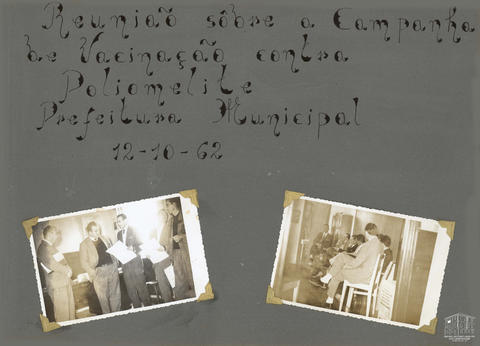 Reunião sôbre a Campanha
de Vacinação contra
Poliomelite
Prefeitura Municipal
12-10-62